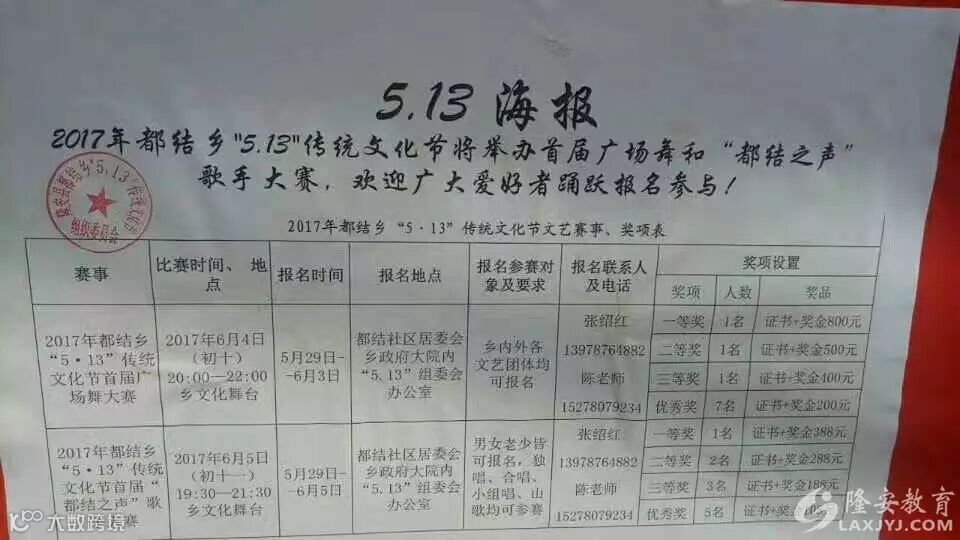 5.13 海报
2017年都结乡"5.13"传统文化节将举办首届广场舞和“都结之声”
歌手大赛，欢迎广大爱好者踊跃报名参与！
隆安县都结乡“5.13”传统文化节
组织委员会
2017年都结乡“5·13”传统文化节文艺赛事、奖项表
赛事 比赛时间、地点 报名时间 报名地点 报名参赛对象及要求 报名联系人及电话 奖项设置
奖项 人数 奖品
2017年都结乡
“5·13”传统
文化节首届广
场舞大赛
2017年6月4日
（初十）
20:00—22:00
乡文化舞台
5月29日-
-6月3日
都结社区居委会
乡政府大院内
“5.13”组委会
办公室
乡内外各
文艺团体均
可报名
张绍红
13978764882
陈老师
15278079234
一等奖 1名 证书+奖金800元
二等奖 1名 证书+奖金500元
三等奖 1名 证书+奖金400元
优秀奖 7名 证书+奖金200元
2017年都结乡
“5·13”传统
文化节首届“
都结之声”歌
手大赛
2017年6月5日
（初十一）
19:30—21:30
乡文化舞台
5月29日-
-6月5日
都结社区居委会
乡政府大院内
“5.13”组委会
办公室
男女老少皆
可报名，独
唱、合唱、
小组唱、山
歌均可参赛
张绍红
13978764882
陈老师
15278079234
一等奖 1名 证书+奖金388元
二等奖 2名 证书+奖金288元
三等奖 3名 证书+奖金188元
优秀奖 5名 证书+奖金
大数跨境
隆安教育
LAXJYJ.COM